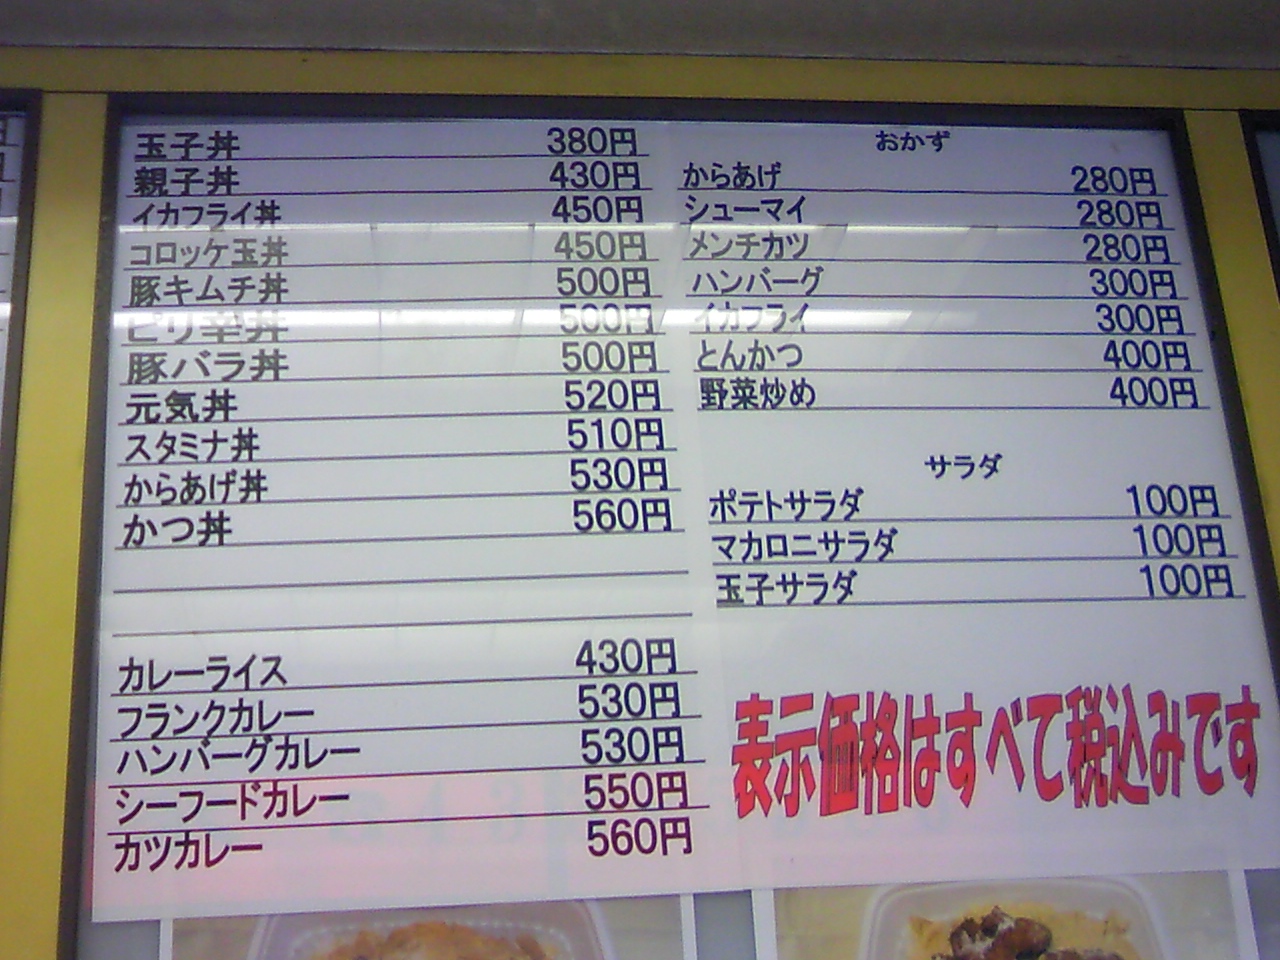 玉子丼 380円
親子丼 430円
イカフライ丼 450円
コロッケ玉丼 450円
豚キムチ丼 500円
ピリ辛丼 500円
豚バラ丼 500円
元気丼 520円
スタミナ丼 510円
からあげ丼 530円
かつ丼 560円
カレーライス 430円
フランクカレー 530円
ハンバーグカレー 530円
シーフードカレー 550円
カツカレー 560円
おかず
からあげ 280円
シューマイ 280円
メンチカツ 280円
ハンバーグ 300円
イカフライ 300円
とんかつ 400円
野菜炒め 400円
サラダ
ポテトサラダ 100円
マカロニサラダ 100円
玉子サラダ 100円
表示価格はすべて税込みです